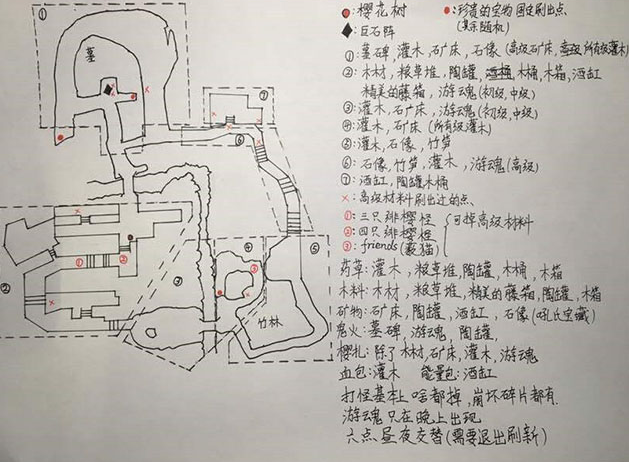 ①
墓
⑦
⑥
②
①
②
③
③
④
⑤
竹林
●:樱花树
●:珍贵的宝物 固定刷出点
(其余随机)
◆:巨石阵
①:墓碑,灌木,石矿床,石像(高级石矿床,所有级灌木)
②:木材,粮草堆,陶罐,木桶,木箱,酒缸
精美的藤箱,游魂(初级,中级)
③:灌木,石矿床,游魂(初级,中级)
④:灌木,石矿床(所有级灌木)
⑤:灌木,石像,竹笋
⑥:石像,竹笋,灌木,游魂(高级)
⑦:酒缸,陶罐木桶
×:高级材料刷出过的点.
①:三只绯樱怪
②:四只绯樱怪
③:friends(薮猫)
可掉高级材料
药草:灌木,粮草堆,陶罐,木桶,木箱
木料:木材,粮草堆,精美的藤箱,陶罐,木箱
矿物:石矿床,陶罐,酒缸,石像(吼氏宝藏)
鬼火:墓碑,游魂,陶罐,
樱扎:除了木材,石矿床,灌木,游魂
血包:灌木 能量包:酒缸
打怪基本上啥都掉,崩坏碎片都有.
游魂只在晚上出现
六点昼夜交替(需要退出刷新)